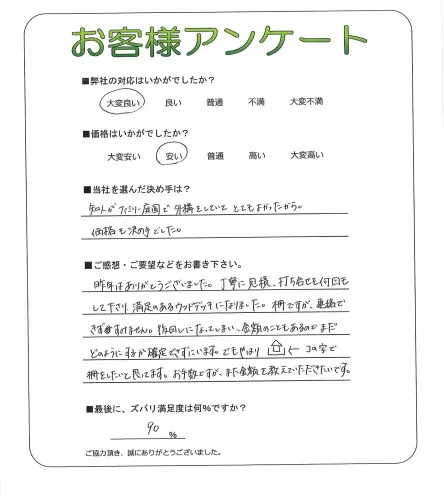 お客様アンケート
■弊社の対応はいかがでしたか？
大変良い 良い 普通 不満 大変不満
■価格はいかがでしたか？
大変安い 安い 普通 高い 大変高い
■当社を選んだ決め手は？
知人がファミリー庭園で外構をしていてとてもよかったから。
価格も決め手でした。
■ご感想・ご要望などをお書き下さい。
昨年はありがとうございました。丁寧に見積、打ち合せも何回も
して下さり、満足のあるウッドデッキになりました。柵ですが、連絡で
きずすみません。後回しになってしまい、金額のこともあるのでまだ
どのようにするか確定できずにいます。でもやはり ← コの字で
柵をしたいと思ってます。お手数ですが、また金額を教えていただきたいです。
■最後に、ズバリ満足度は何%ですか？
90
%
ご協力頂き、誠にありがとうございました。